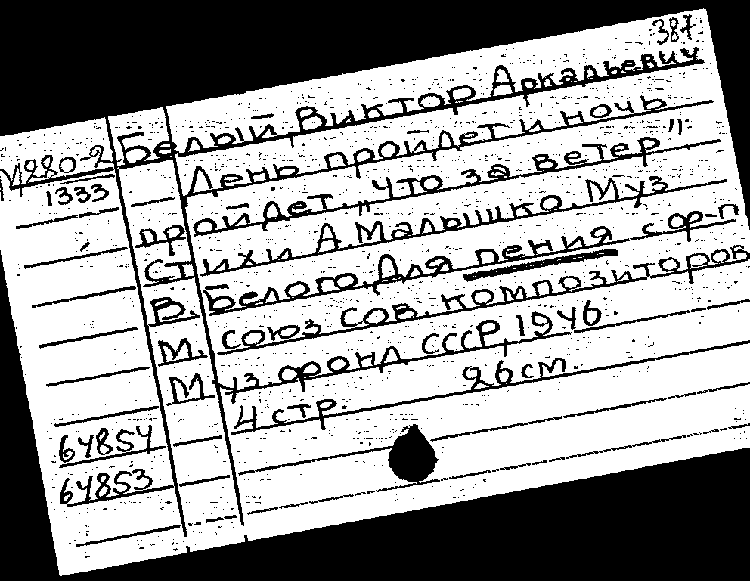 387
Белый, Виктор Аркадьевич
М280-2
1333
День пройдет и ночь
пройдет. „Что за ветер".
Стихи А. Малышко. Муз
В. Белого. Для пения с ор-п
М. Союз сов. композиторов
Муз. фонд СССР, 1946.
4 стр. 26 см.
64854
64853